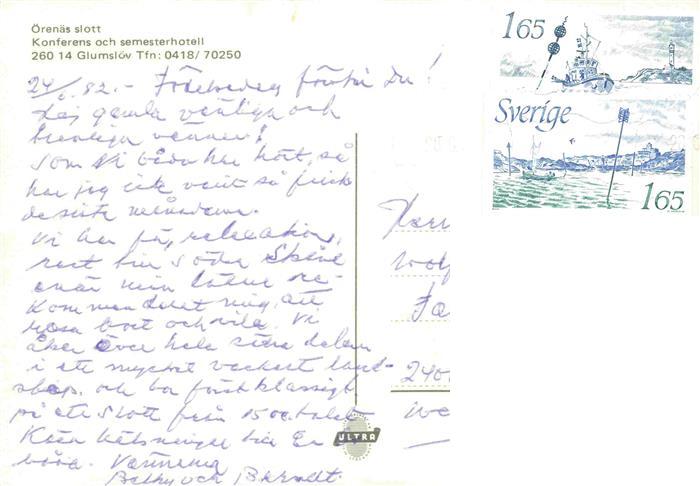 Örenäs slott
Konferens och semesterhotell
260 14 Glumslöv Tfn: 0418/ 70250
165
Sverige
165
24/6.82. - du!
Hej gamla vänliga och
vänner!
Som Ni båda har hört, så
har jag inte varit så frisk
de sista månaderna.
Vi har på relaxation,
rest hit södra Skåne
enär min
kommenderat mig att
resa bort och vila. Vi
åker över hela södra delen
i ett mycket vackert land-
skap. och bor förstklassigt
på ett slott från 1500 talet
Kära hälsningar till Er
båda. Vännerna
Betty och Berndt.
Herr
240
ULTRA